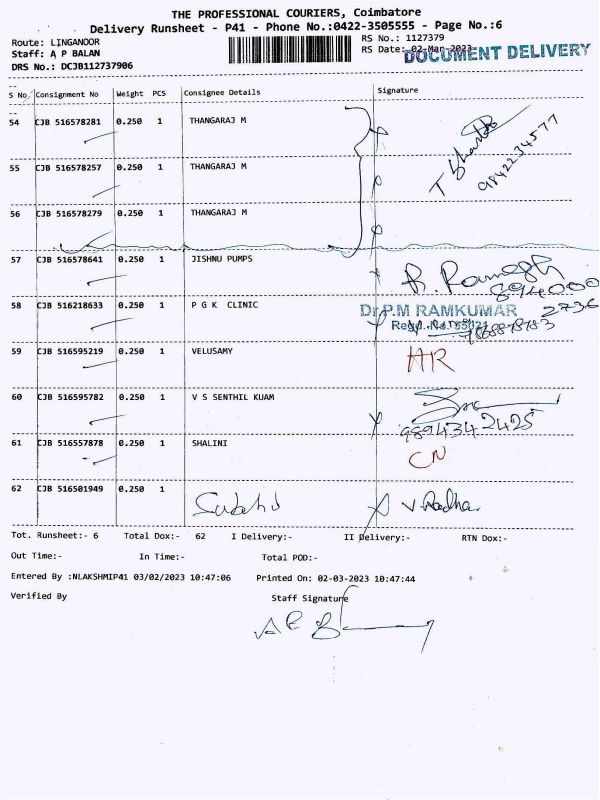 THE PROFESSIONAL COURIERS, Coimbatore
Delivery Runsheet - P41 - Phone No.:0422-3505555 - Page No.:6
Route: LINGANOOR
RS No.: 1127379
Staff: A P BALAN
RS Date: 02-Mar-2023
DOCUMENT DELIVERY
DRS No.: DCJB112737906
S No. Consignment No Weight PCS Consignee Details Signature
54 CJB 516578281 0.250 1 THANGARAJ M
9842234577
55 CJB 516578257 0.250 1 THANGARAJ M
56 CJB 516578279 0.250 1 THANGARAJ M
57 CJB 516578641 0.250 1 JISHNU PUMPS R. Ramesh
894000
2736
58 CJB 516218633 0.250 1 P G K CLINIC Dr P.M RAMKUMAR
59 CJB 516595219 0.250 1 VELUSAMY AR
60 CJB 516595782 0.250 1 V S SENTHIL KUAM
9894342425
61 CJB 516557878 0.250 1 SHALINI CN
62 CJB 516501949 0.250 1 V. Radha
Tot. Runsheet:- 6 Total Dox:- 62 I Delivery:- II Delivery:- RTN Dox:-
Out Time:- In Time:- Total POD:-
Entered By :NLAKSHMIP41 03/02/2023 10:47:06 Printed On: 02-03-2023 10:47:44
Verified By Staff Signature